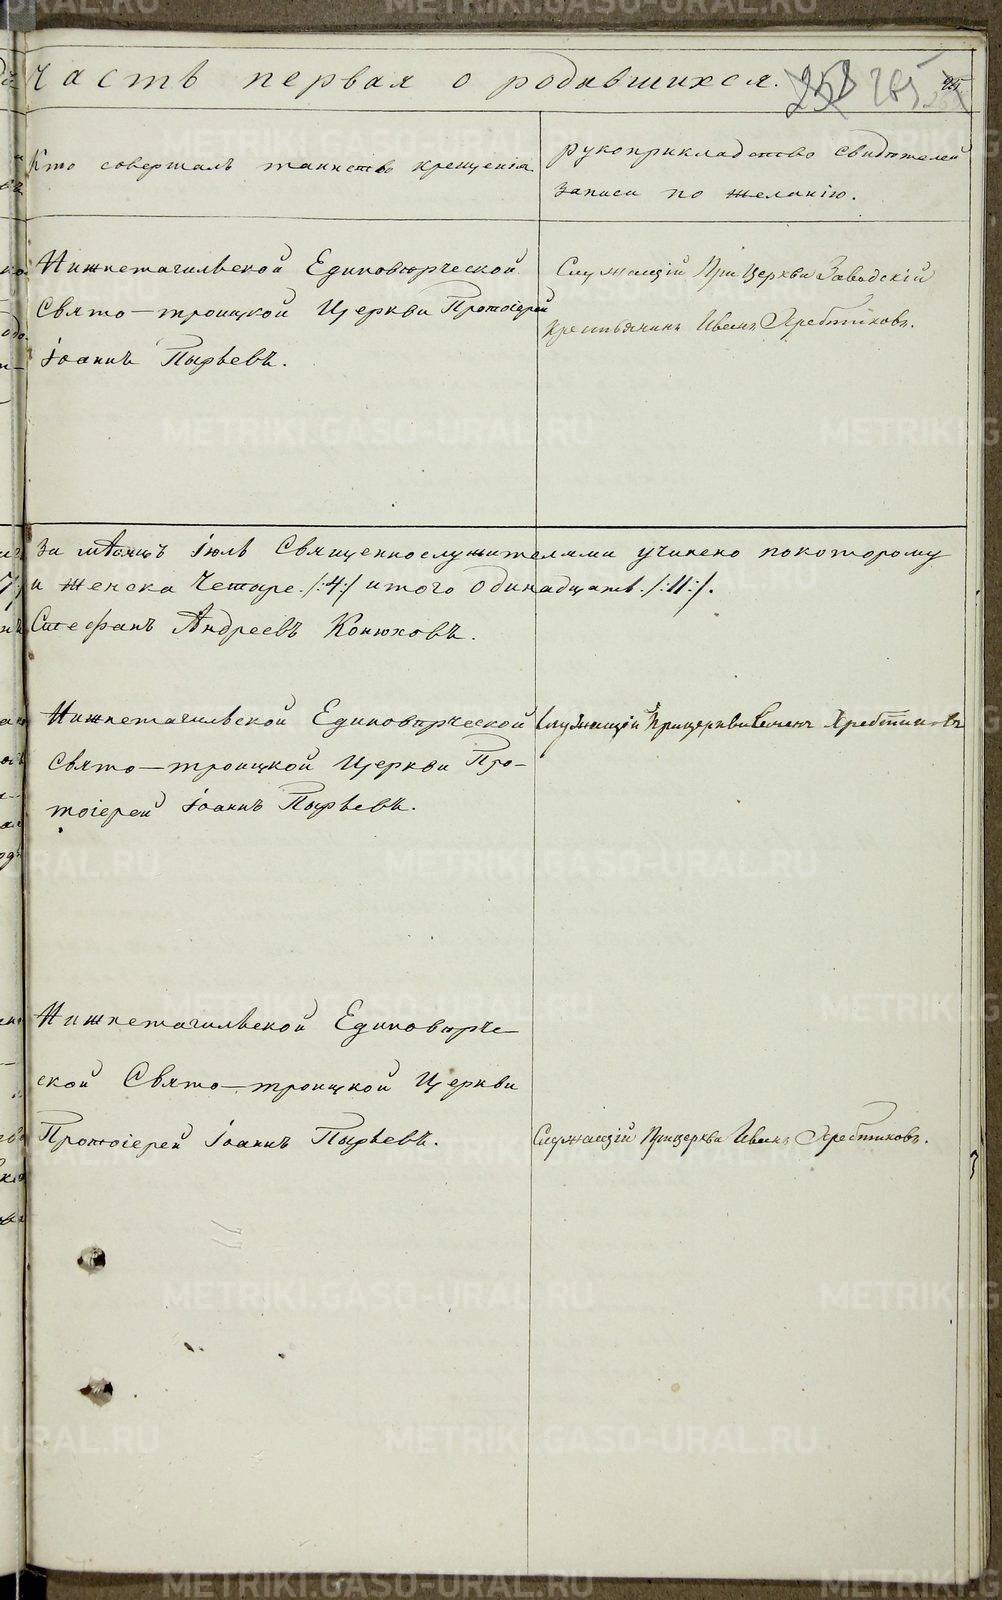 часть первая о родившихся. 258 265
Кто совершалъ таинство крещенія
рукоприкладство свидѣтелей
записи по желанію.
Нижнетагильской Единовѣрческой
Свято-троицкой Церкви Протоіерей
Іоаннъ Пырьевъ.
Служащій При Церкви Заводскій
крестьянинъ Иванъ Хребтиковъ.
За мѣсяцъ Іюль Священнослужителями учинено покоторому
и женска Четыре ./:4:/ итого одинадцать ./:11:/.
Стефанъ Андреевъ Конюховъ.
Нижнетагильской Единоврческой
Свято-троицкой Церкви Про-
тоіерей Іоаннъ Пырьевъ.
Служащій Прицеркви Семенъ Хребтиковъ
Нижнетагильской Единоверче
ской Свято-троицкой Церкви
Протоіерей Іоаннъ Пырьевъ.
Служащій Прицеркви Иванъ Хребтиковъ.
METRIKI.GASO-URAL.RU